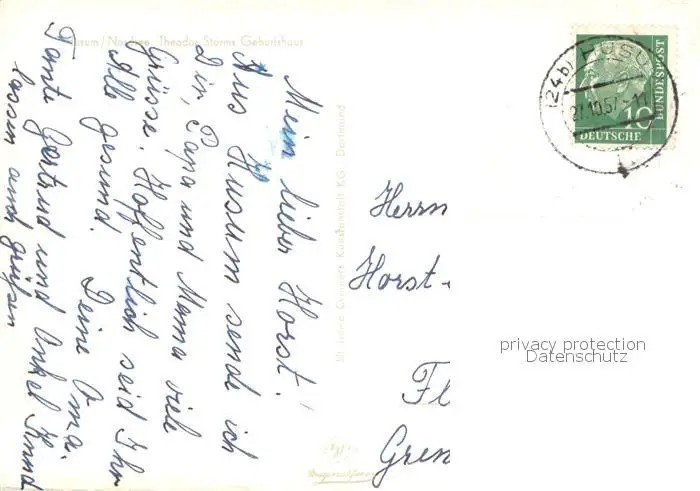 Husum/Nordsee Theodor Storms Geburtshaus
Mein lieber Horst!
Aus Husum sende ich
Dir, Papa und Mama viele
Grüsse. Hoffentlich seid Ihr
Alle gesund. Deine Oma.
Tante Gertrud und Onkel Knud
lassen auch grüßen
Kunstanstalt KG., Dortmund
(24b) HUSU
27.10.57.-11
10
DEUTSCHE
BUNDESPOST
Herrn
Horst-
Fl
Gren
privacy protection
Datenschutz